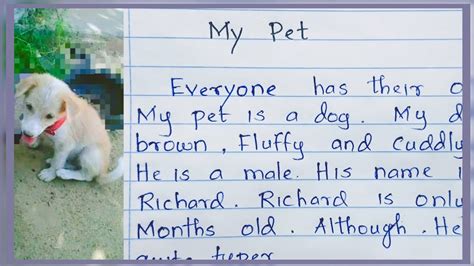 My Pet
Everyone has their o
My pet is a dog. My d
brown, Fluffy and cuddly
He is a male. His name i
Richard. Richard is only
Months old. Although. He